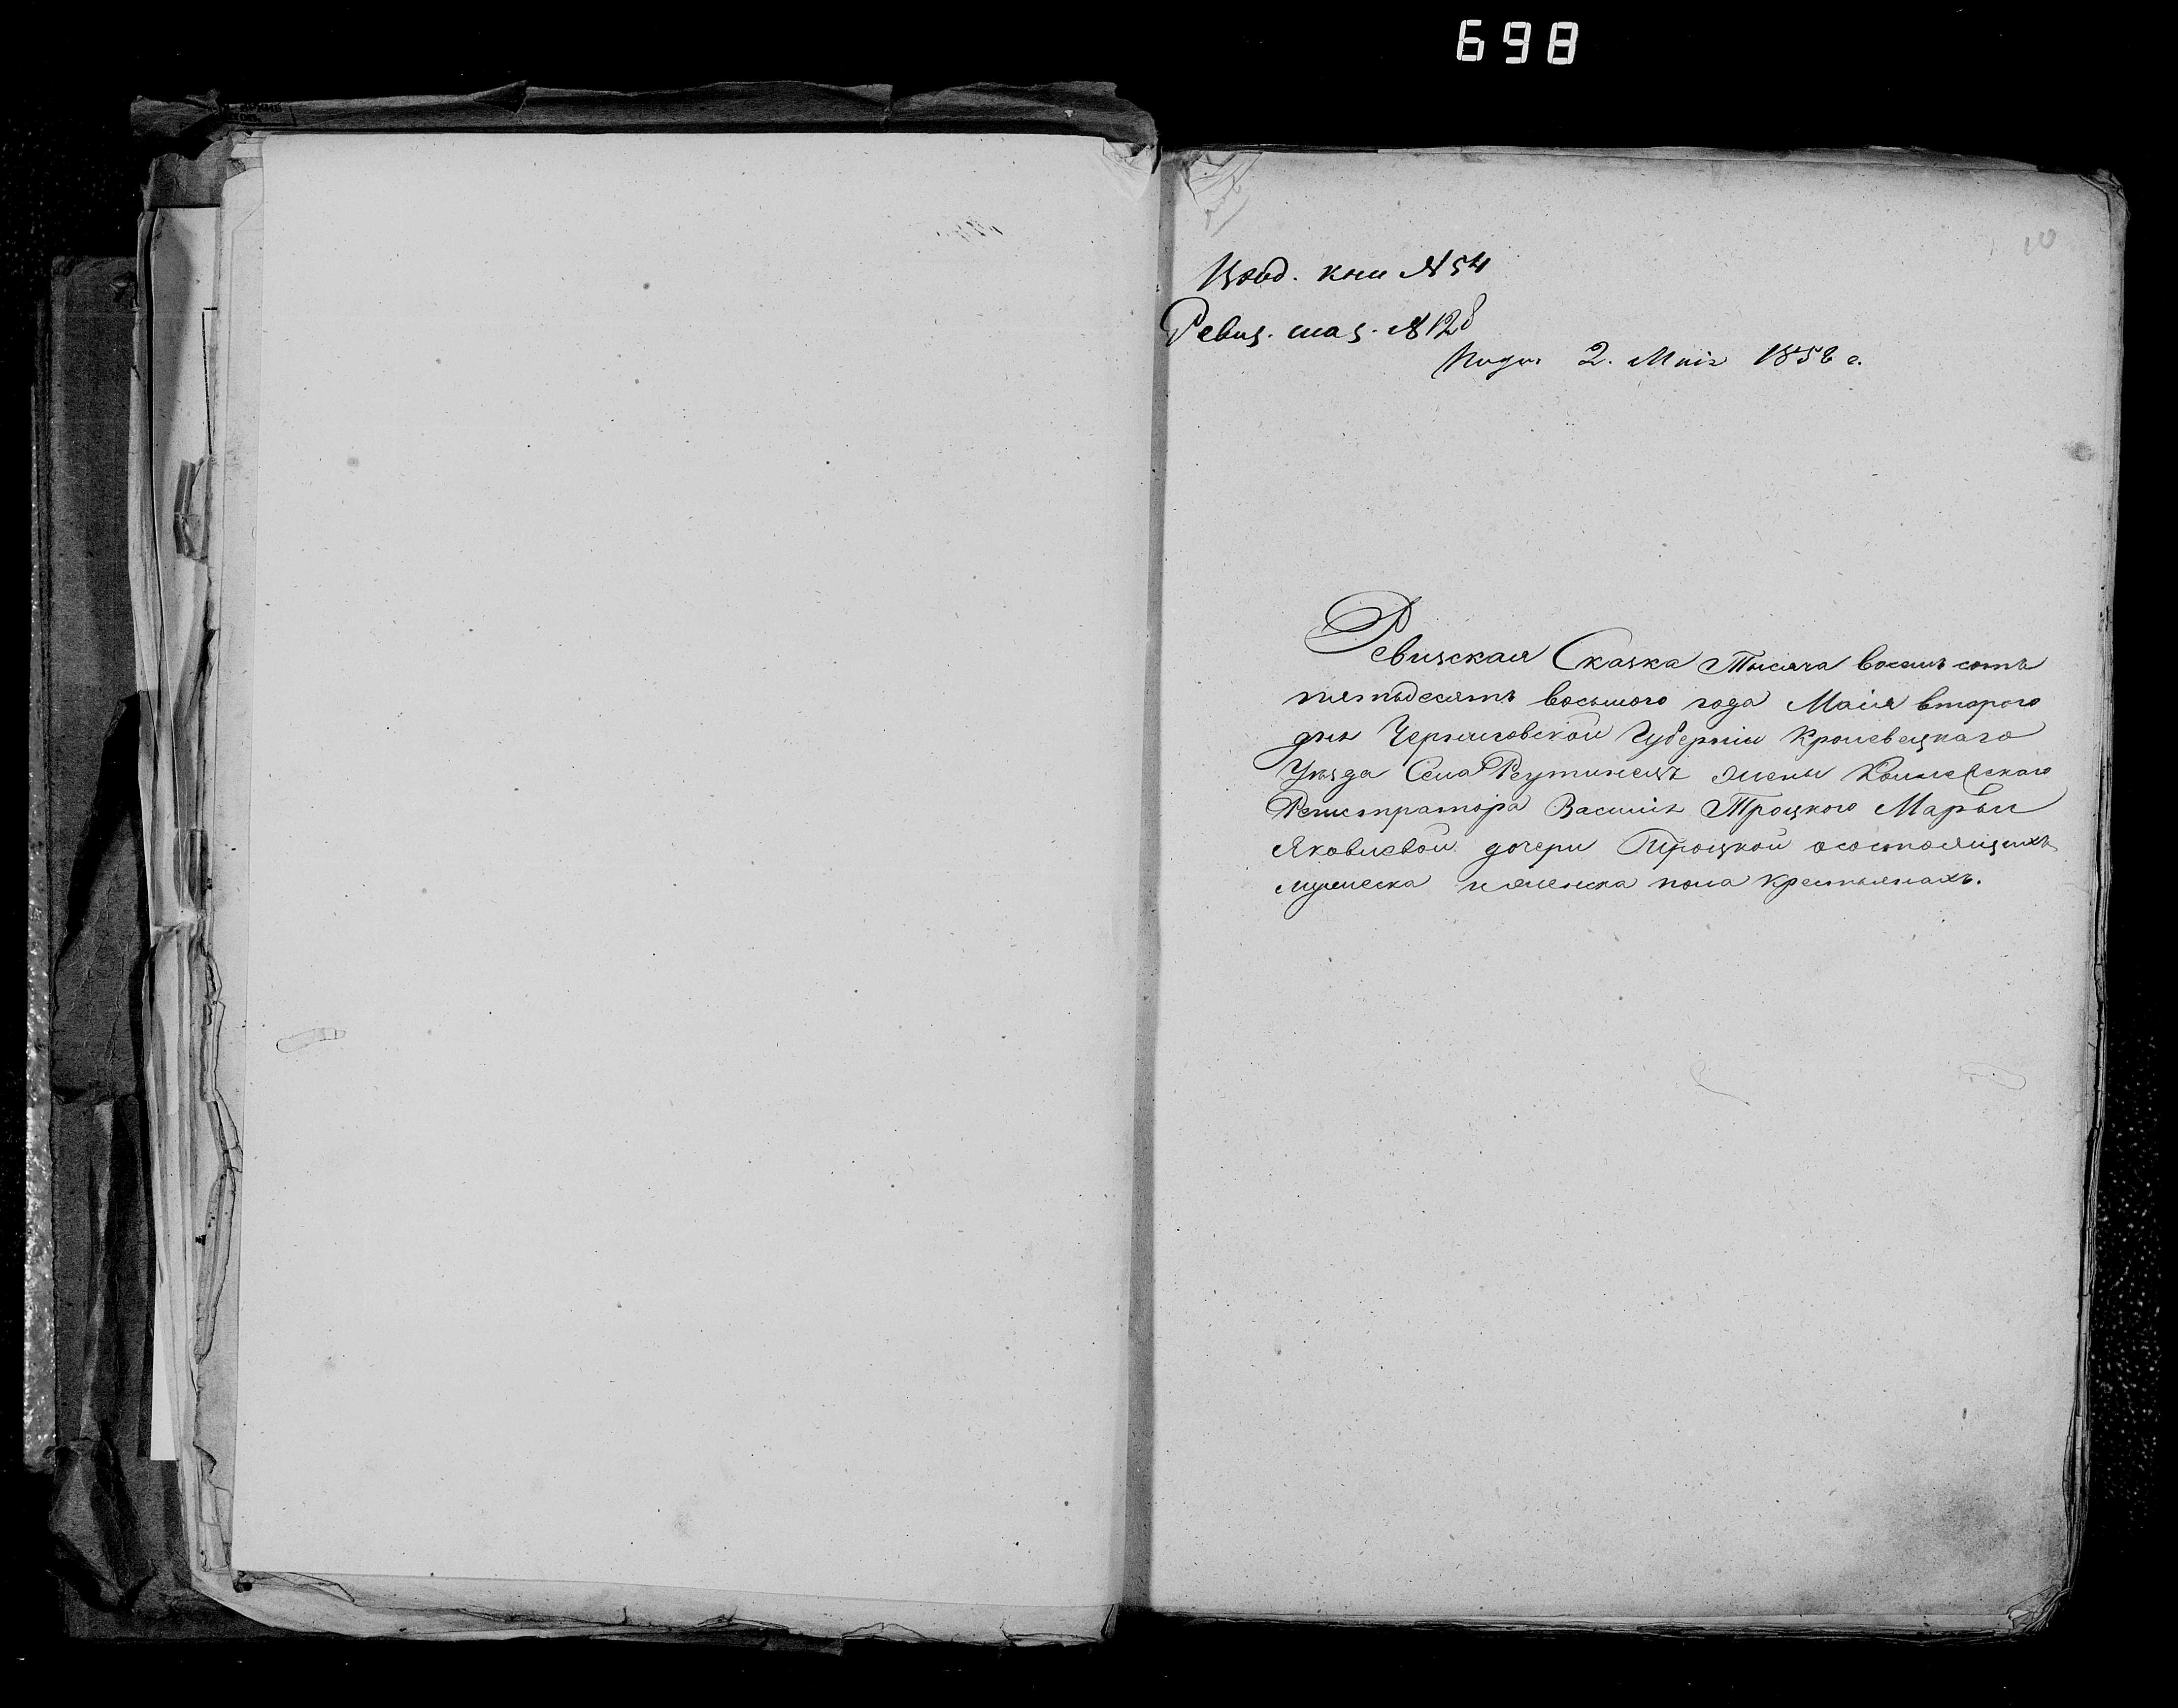 698
10
кни № 54
Ревиз. сказ. № 128
Пода. 2. Маія 1858 г.
Ревизская Сказка Тысяча восемь сотъ
пятьдесятъ восьмого года Маія второго
дня Черниговской Губерніи Кролевецкаго
Уѣзда Села Реутинецъ жены Коллежскаго
Регистратора Василія Троцкого Марьи
Яковлевой дочери Троцкой о состоящихъ
мужеска и женска пола крестьянахъ.